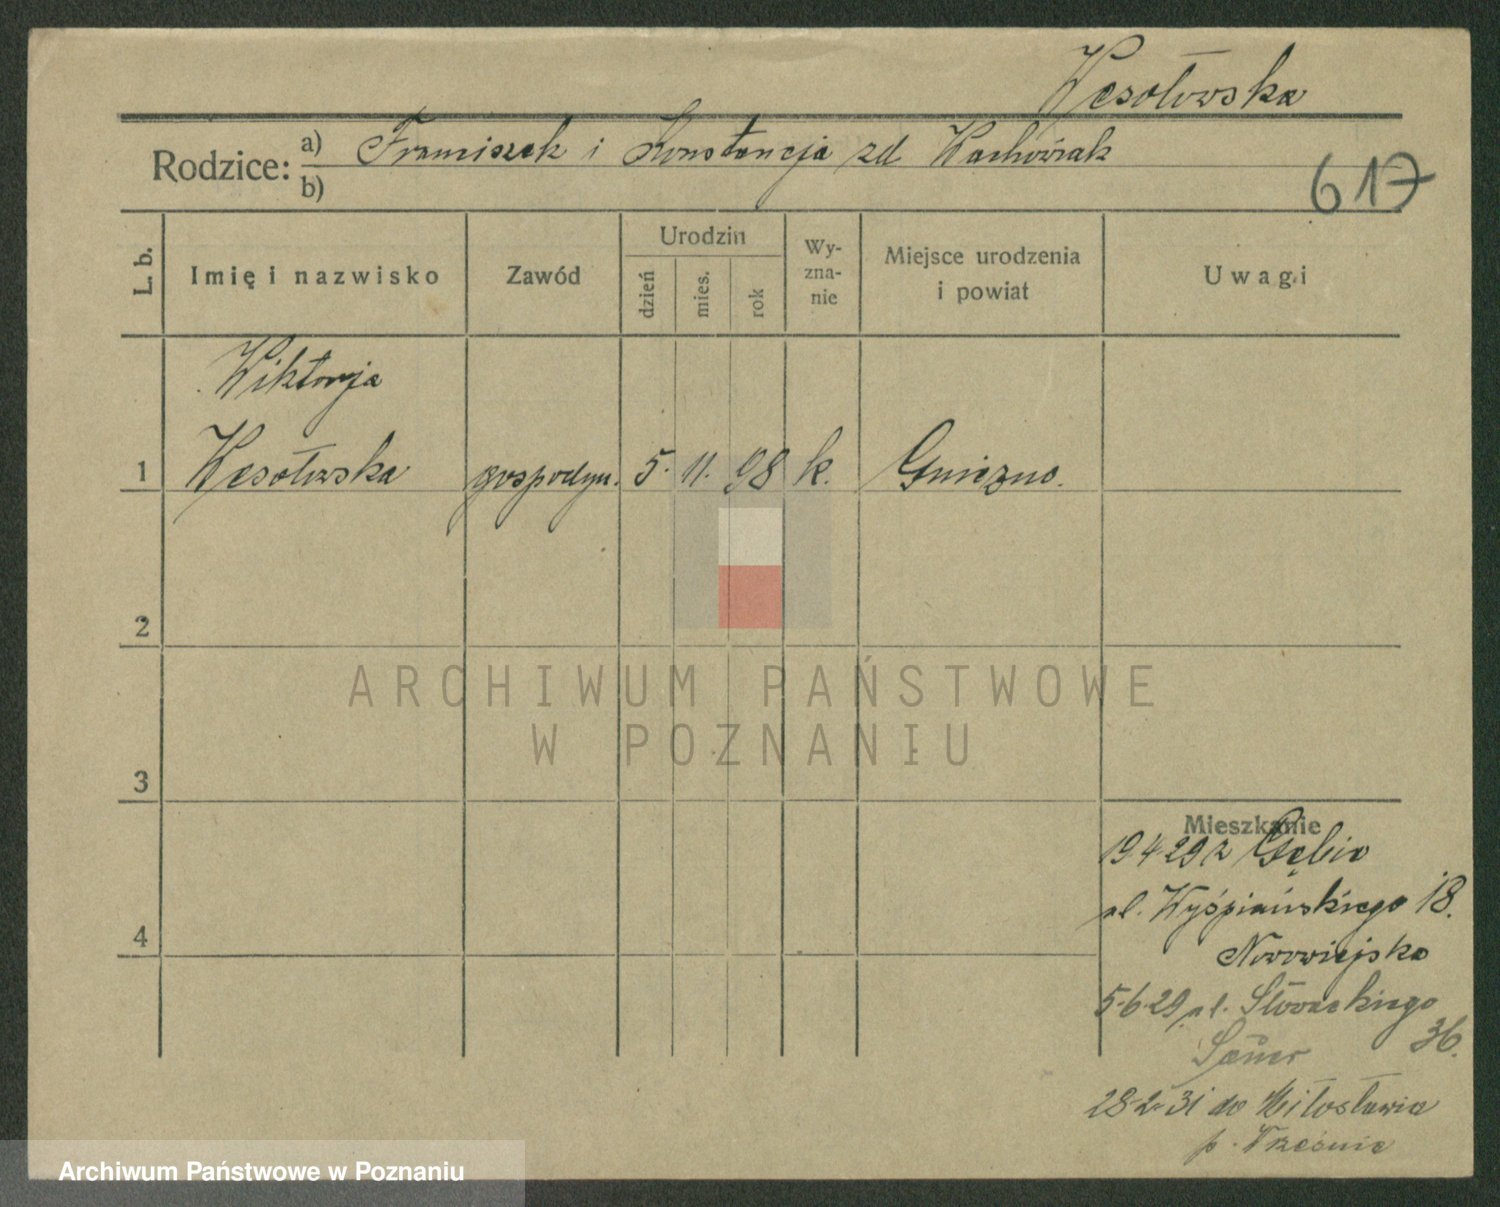 Wesołowska
Rodzice: a) Franciszek i Konstancja zd Wachowiak
b)
617
L. b.
Imię i nazwisko
Zawód
Urodzin
dzień
mies.
rok
Wy-
zna-
nie
Miejsce urodzenia
i powiat
Uwagi
Wiktorja
1 Wesołowska gospodyn. 5. 11. 98 k. Gniezno.
2
3
4
ARCHIWUM PAŃSTWOWE
W POZNANIU
Mieszkanie
19.4.29 z Gębic
ul. Wyśpiańskiego 18.
Nowowiejska
5.6.29 ul. Słowackiego
36.
28.2.31 do Miłosławia
p. Września
Archiwum Państwowe w Poznaniu